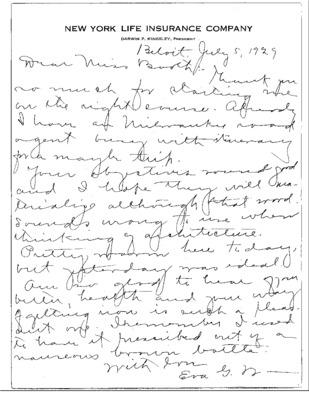 NEW YORK LIFE INSURANCE COMPANY
DARWIN P. KINGSLEY, PRESIDENT
Beloit, July 5, 1929
Dear Miss Booth: Thank you
so much for starting me
on the right course. Already
I have a Milwaukee
agent busy with itinerary
for a maybe trip.
Your objectives sound good
and I hope they will ma-
terialize although that word
sounds wrong to use when
thinking of architecture.
Pretty warm here today,
but yesterday was ideal.
Am so glad to hear of your
better health and your way
of getting now is such a pleas-
ant one. I remember I used
to have it prescribed out of a
nauseous brown bottle.
With love
Eva G.